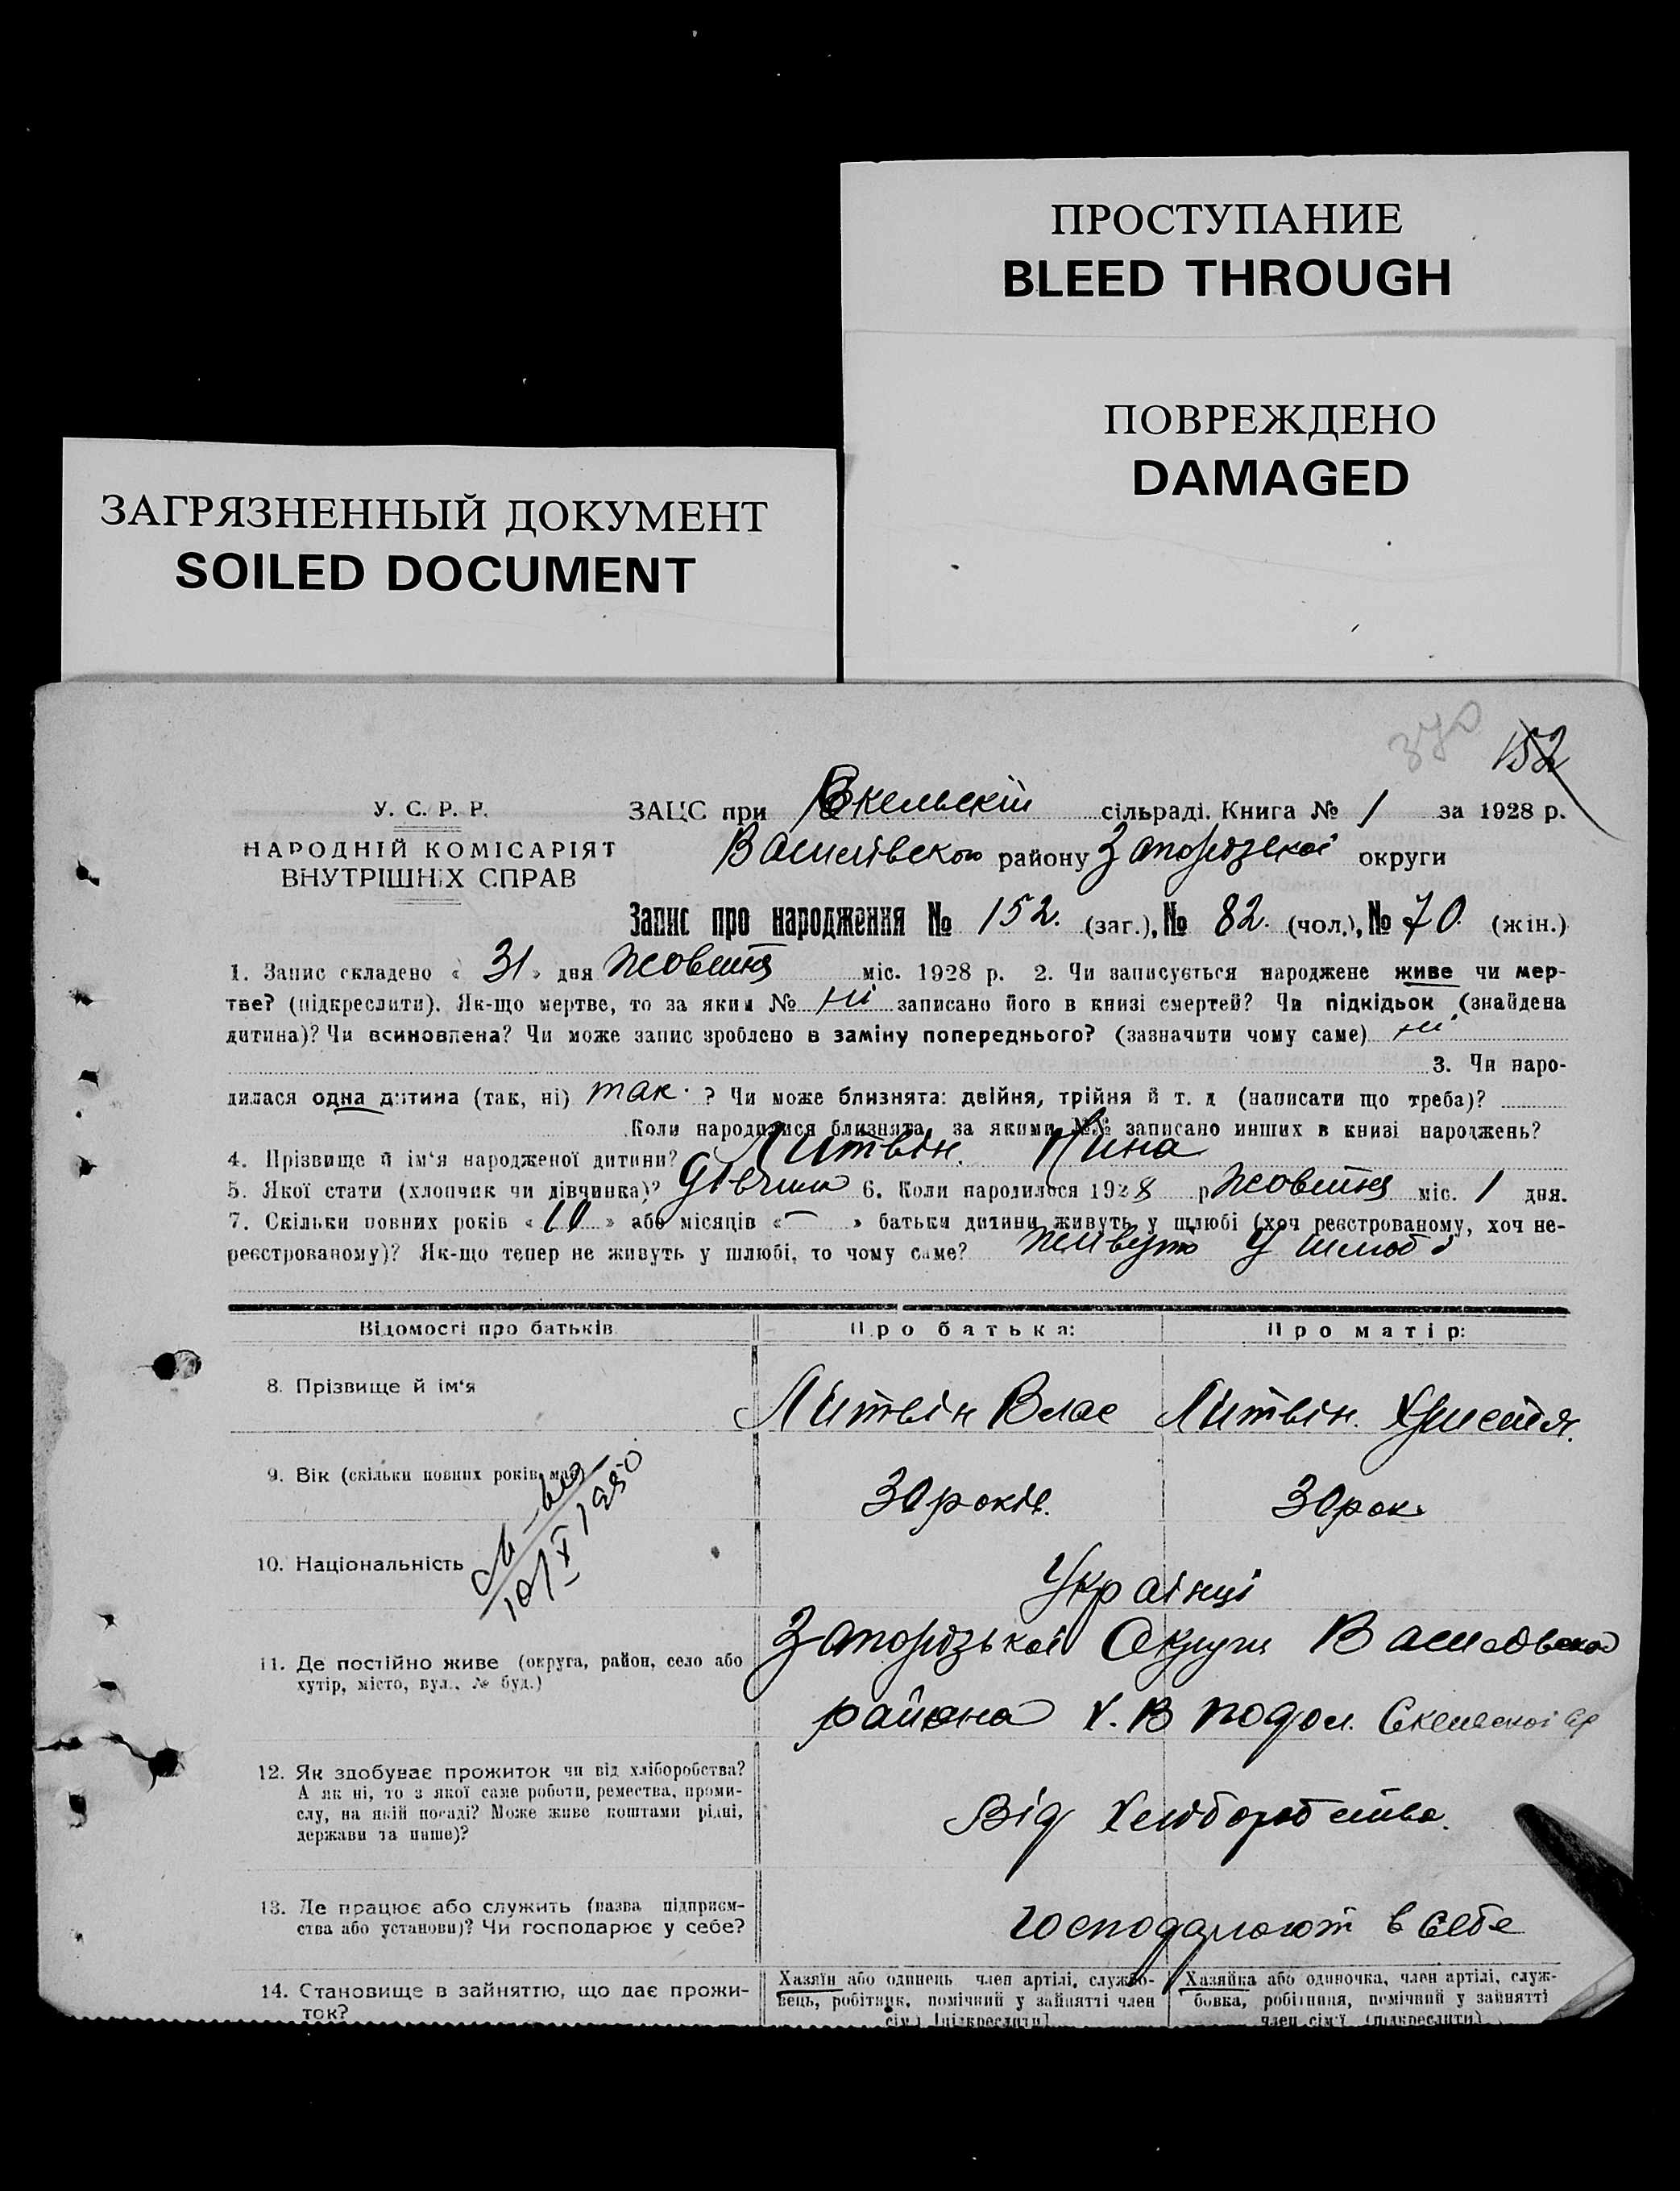 ПРОСТУПАНИЕ
BLEED THROUGH
ПОВРЕЖДЕНО
DAMAGED
ЗАГРЯЗНЕННЫЙ ДОКУМЕНТ
SOILED DOCUMENT
370
152
У. С. Р. Р.
НАРОДНІЙ КОМІСАРІЯТ
ВНУТРІШНІХ СПРАВ
ЗАЦС при Скельскій сільраді. Книга № 1 за 1928 р.
Василівского району Запорізскої округи
Запис про народження № 152. (заг.), № 82. (чол.), № 70. (жін.)
1. Запис складено « 31 » дня Жовтня міс. 1928 р. 2. Чи записується народжене живе чи мер-
тве? (підкреслити). Як-що мертве, то за яким № ні записано його в книзі смертей? Чи підкідьок (знайдена
дитина)? Чи всиновлена? Чи може запис зроблено в заміну попереднього? (зазначити чому саме) ні
3. Чи наро-
дилася одна дитина (так, ні) так. ? Чи може близнята: двійня, трійня й т. д (написати що треба)?
Коли народилися близнята, за якими №№ записано инших в книзі народжень?
4. Прізвище й ім'я народженої дитини? Литвін. Нина
5. Якої стати (хлопчик чи дівчинка)? Дівчина 6. Коли народилося 1928 р Жовтня міс. 1 дня.
7. Скільки повних років « 10 » або місяців « — » батьки дитини живуть у шлюбі (хоч реєстрованому, хоч не-
реєстрованому)? Як-що тепер не живуть у шлюбі, то чому саме? живуть у шлюбі
Відомості про батьків Про батька: Про матір:
8. Прізвище й ім'я Литвін Влас Литвін. Христя.
9. Вік (скільки повних років має) 30 років. 30 рок.
10/X 1950
10. Національність Українці
11. Де постійно живе (округа, район, село або
хутір, місто, вул., № буд.)
Запорізької Округи
района Х. В Подол. Скельскої
12. Як здобуває прожиток чи від хліборобства?
А як ні, то з якої саме роботи, ремества, проми-
слу, на якій посаді? Може живе коштами рідні,
держави та инше)?
Від Хліборобства.
13. Де працює або служить (назва підприєм-
ства або установи)? Чи господарює у себе?
Господарюют в себе
14. Становище в зайняттю, що дає прожи-
ток?
Хазяїн або одинець член артілі, службо-
вець, робітник, помічний у зайнятті член
сім'ї [підкреслити]
Хазяйка або одиночка, член артілі, служ-
бовка, робітниця, помічний у зайнятті
член сім'ї (підкреслити)